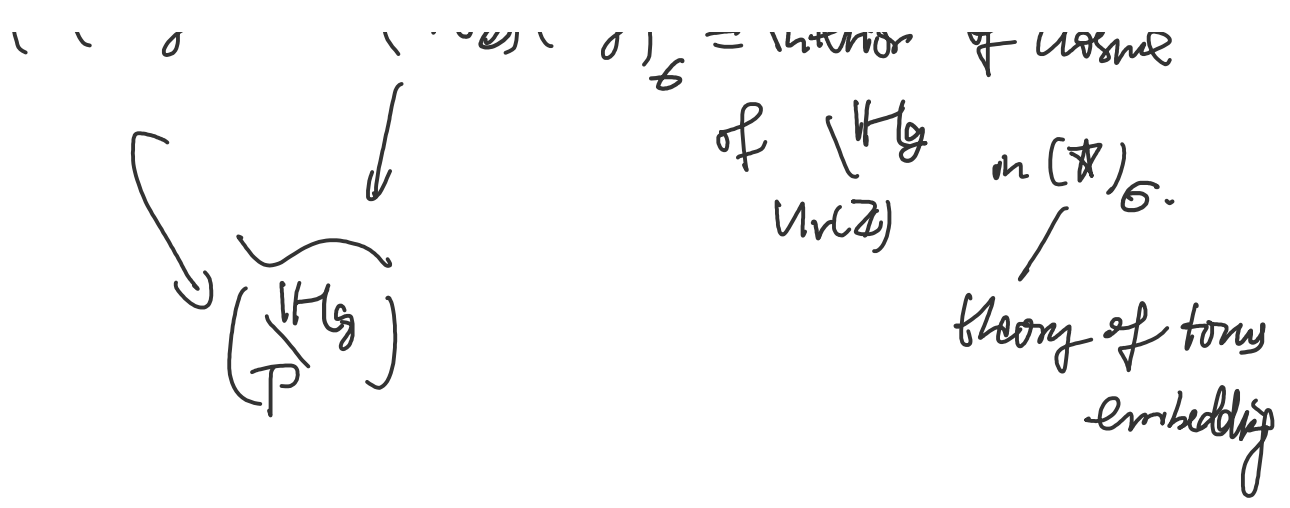 )₆ = interior of closure
of \ ℍg in (*)₆.
Ur(ℤ)
(ℍg
theory of torus
P)
embedding